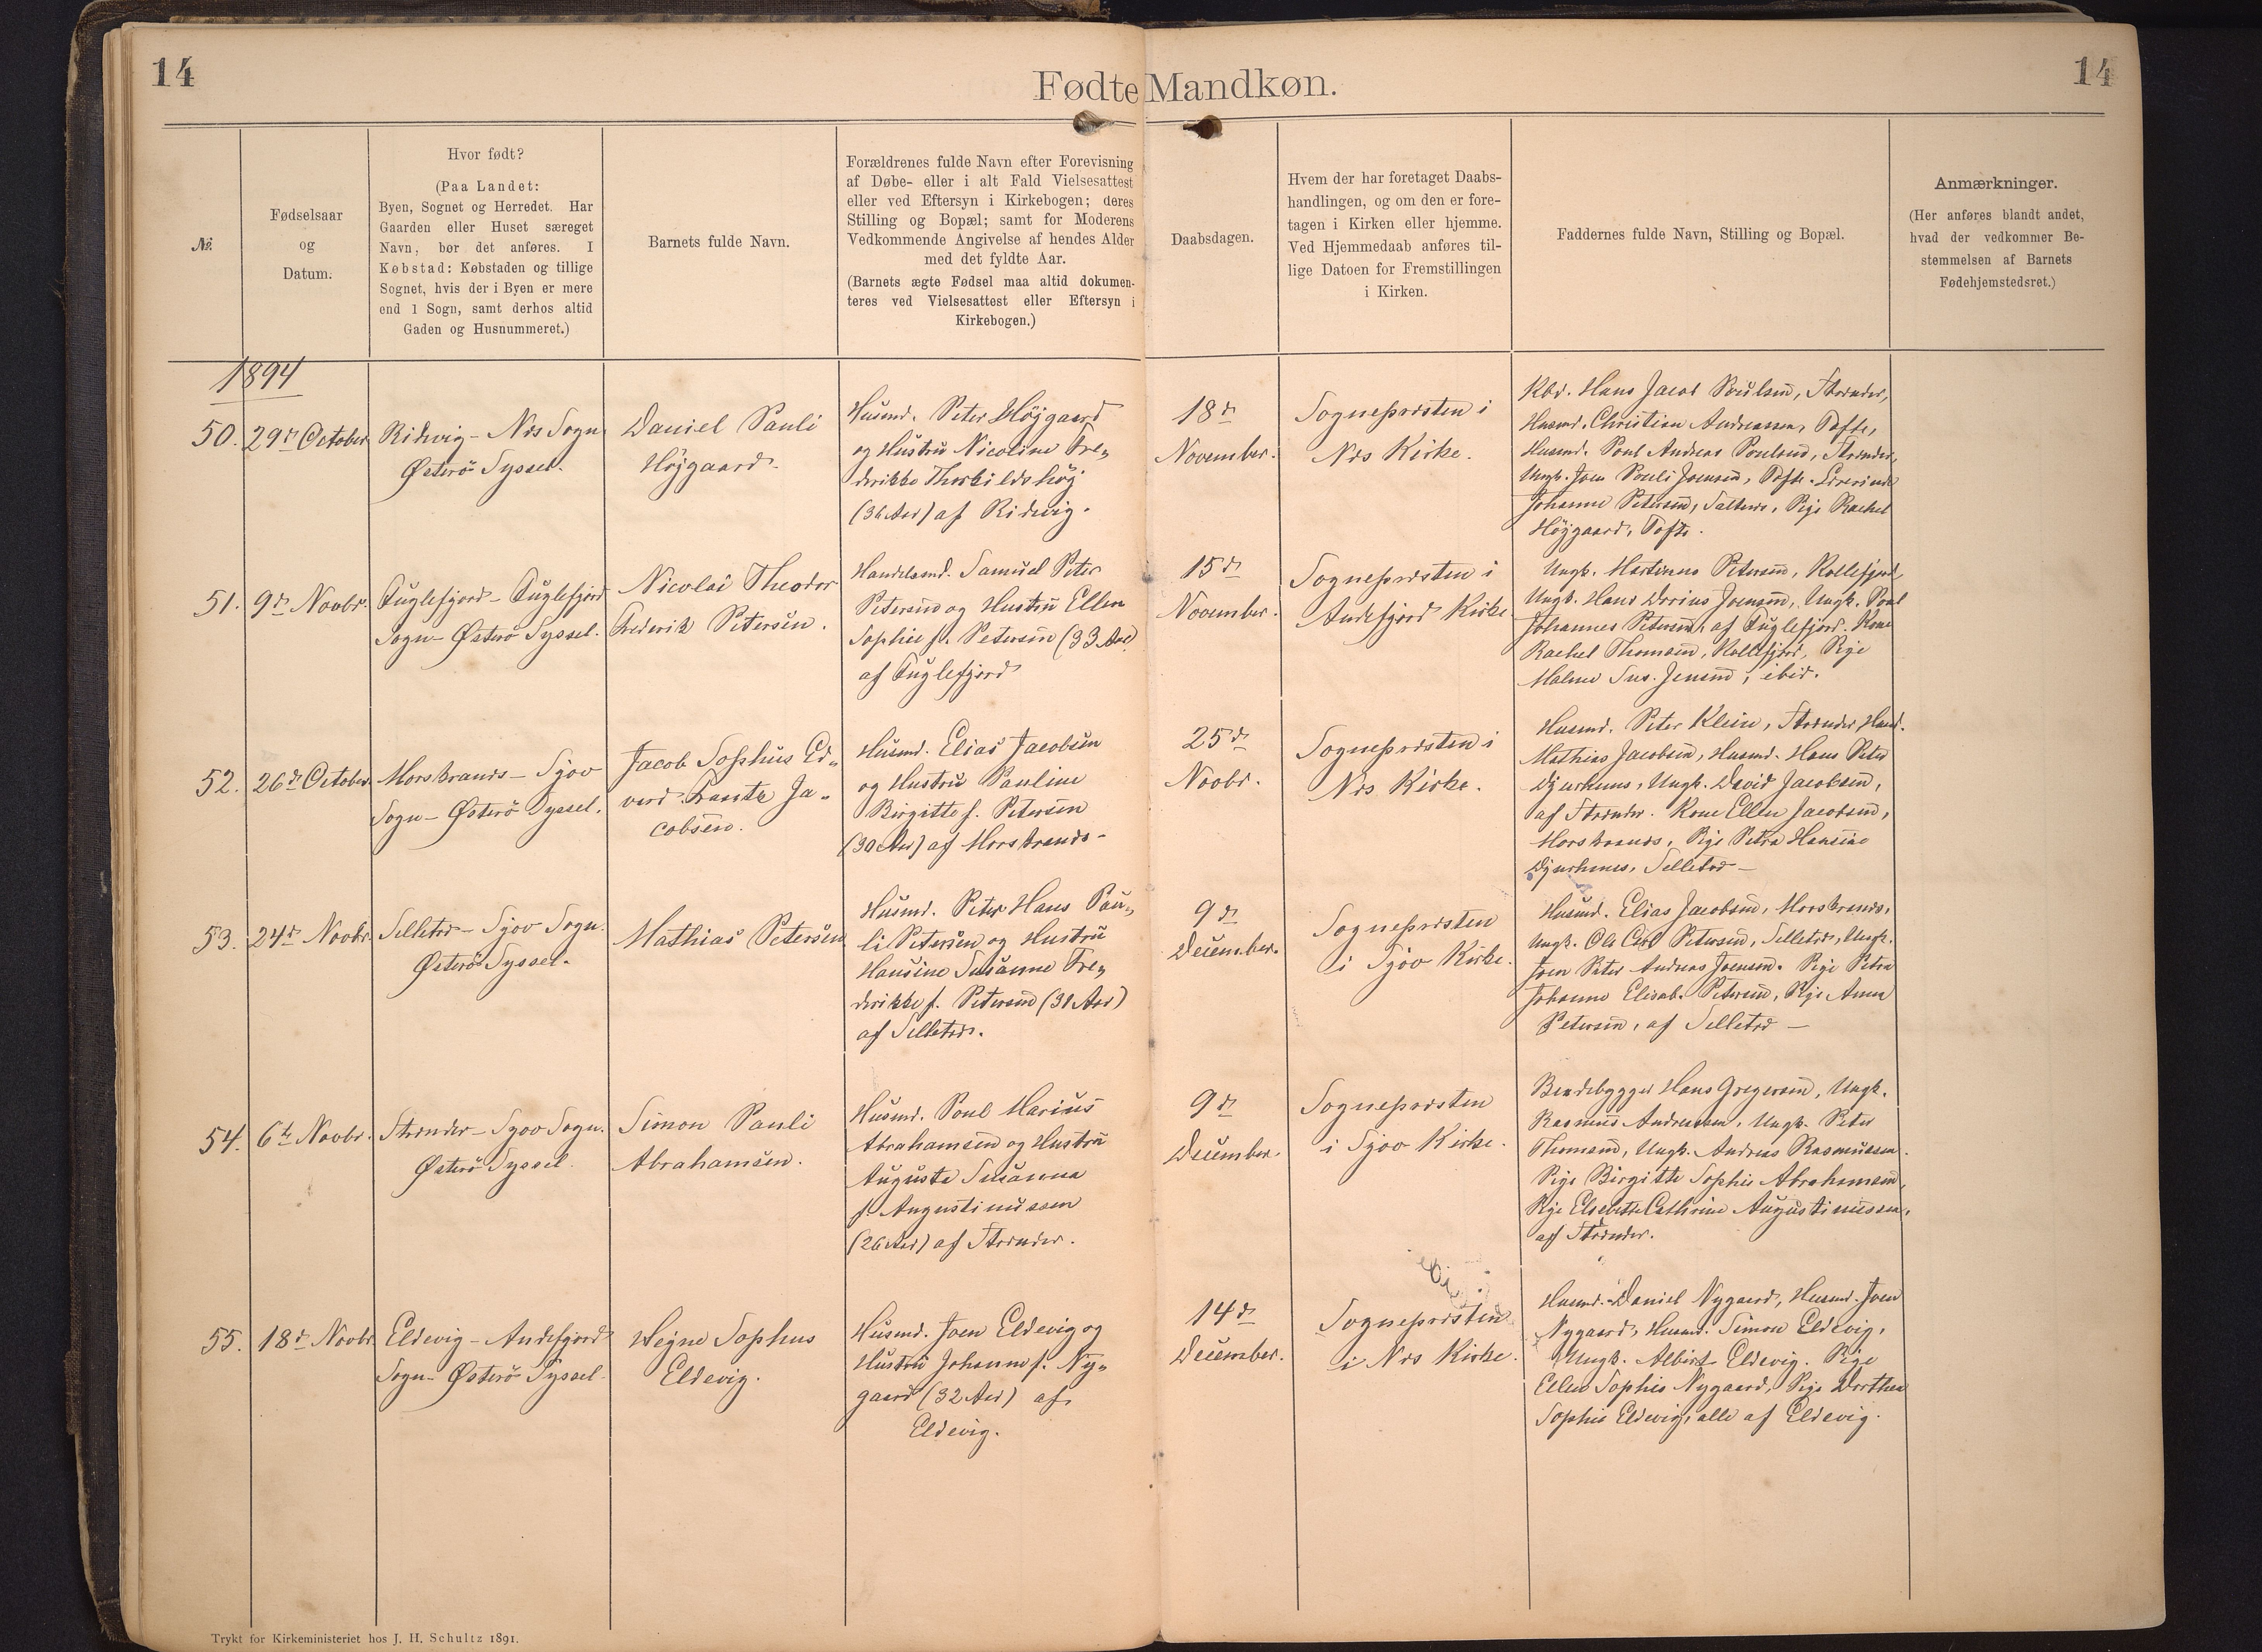 14
Fødte Mandkøn.
14
No.
Fødselsaar
og
Datum.
Hvor født?
(Paa Landet:
Byen, Sognet og Herredet. Har
Gaarden eller Huset særeget
Navn, bør det anføres. I
Købstad: Købstaden og tillige
Sognet, hvis der i Byen er mere
end 1 Sogn, samt derhos altid
Gaden og Husnummeret.)
Barnets fulde Navn.
Forældrenes fulde Navn efter Forevisning
af Døbe- eller i alt Fald Vielsesattest
eller ved Eftersyn i Kirkebogen; deres
Stilling og Bopæl; samt for Moderens
Vedkommende Angivelse af hendes Alder
med det fyldte Aar.
(Barnets ægte Fødsel maa altid dokumen-
teres ved Vielsesattest eller Eftersyn i
Kirkebogen.)
Daabsdagen.
Hvem der har foretaget Daabs-
handlingen, og om den er fore-
tagen i Kirken eller hjemme.
Ved Hjemmedaab anføres til-
lige Datoen for Fremstillingen
i Kirken.
Faddernes fulde Navn, Stilling og Bopæl.
Anmærkninger.
(Her anføres blandt andet,
hvad der vedkommer Be-
stemmelsen af Barnets
Fødehjemstedsret.)
1894
50.
29d October
Ridevig - Næs Sogn
Østerø Syssel.
Daniel Pauli
Højgaard.
Husmd. Peter Højgaard
og Hustru Nicoline Fre-
derikke Thorkildshøj
(36 Aar) af Ridevig.
18d
November.
Sognepræsten i
Næs Kirke.
Kbd. Hans Jacob Poulsen, Strænder,
Husmd. Christian Andreassen, Tofte,
Husmd. Poul Andreas Poulsen, Strænder,
Ungk. Joen Pouli Joensen, Tofte. Lærerinde
Johanne Petersen, Saltnæs, Pige Rachel
Højgaard, Tofte.
51.
9d Novbr.
Fuglefjord - Fuglefjord
Sogn - Østerø Syssel.
Nicolai Theodor
Frederik Petersen.
Handelsmd. Samuel Peter
Petersen og Hustru Ellen
Sophie f. Petersen (33 Aar)
af Fuglefjord
15d
November.
Sognepræsten i
Andefjord Kirke
Ungk. Martinus Petersen, Kollefjord,
Ungk. Hans Dorius Joensen, Ungk. Poul
Johannes Petersen, af Fuglefjord. Kone
Rachel Thomsen, Kollefjord, Pige
Malene Sus. Jensen, ibid.
52.
26d October
Morskranes - Sjov
Sogn - Østerø Syssel.
Jacob Sophus Ed-
vard Frantz Ja-
cobsen.
Husmd. Elias Jacobsen
og Hustru Pauline
Birgitte f. Petersen
(30 Aar) af Morskranes -
25d
Novbr.
Sognepræsten i
Næs Kirke.
Husmd. Peter Klein, Strænder, Husmd.
Mathias Jacobsen, Husmd. Hans Peter
Djurhuus, Ungk. David Jacobsen,
af Strænder. Kone Ellen Jacobsen,
Morskranes, Pige Petra Hansine
Djurhuus, Selletræ -
53.
24d Novbr.
Selletræ - Sjov Sogn.
Østerø Syssel.
Mathias Petersen
Husmd. Peter Hans Pau-
li Petersen og Hustru
Hansine Susanne Fre-
derikke f. Petersen (31 Aar)
af Selletræ.
9d
December.
Sognepræsten
i Sjov Kirke.
Husmd. Elias Jacobsen, Morskranes,
Ungk. Ole Carl Petersen, Selletræ, Ungk.
Joen Peter Andreas Joensen. Pige Petra
Johanne Elisab. Petersen, Pige Anna
Petersen, af Selletræ -
54.
6te Novbr.
Strænder - Sjov Sogn.
Østerø Syssel
Simon Pauli
Abrahamsen.
Husmd. Poul Marius
Abrahamsen og Hustru
Augusta Susanna
f. Augustinussen
(26 Aar) af Strænder.
9d
December.
Sognepræsten
i Sjov Kirke.
Baadebygger Hans Gregersen, Ungk.
Rasmus Andreassen, Ungk. Peter
Thomsen, Ungk. Andreas Rasmussen.
Pige Birgitte Sophie Abrahamsen,
Pige Elsebeth Cathrine Augustinussen,
af Strænder.
55.
18d Novbr
Eldevig - Andefjord
Sogn - Østerø Syssel.
Hejne Sophus
Eldevig.
Husmd. Joen Eldevig og
Hustru Johanne f. Ny-
gaard (32 Aar) af
Eldevig.
14d
December.
Sognepræsten
i Næs Kirke.
Husmd. Daniel Nygaard, Husmd. Joen
Nygaard, Husmd. Simon Eldevig,
Ungk. Albert Eldevig. Pige
Ellen Sophie Nygaard, Pige Dorthea
Sophie Eldevig, alle af Eldevig.
Trykt for Kirkeministeriet hos J. H. Schultz 1891.